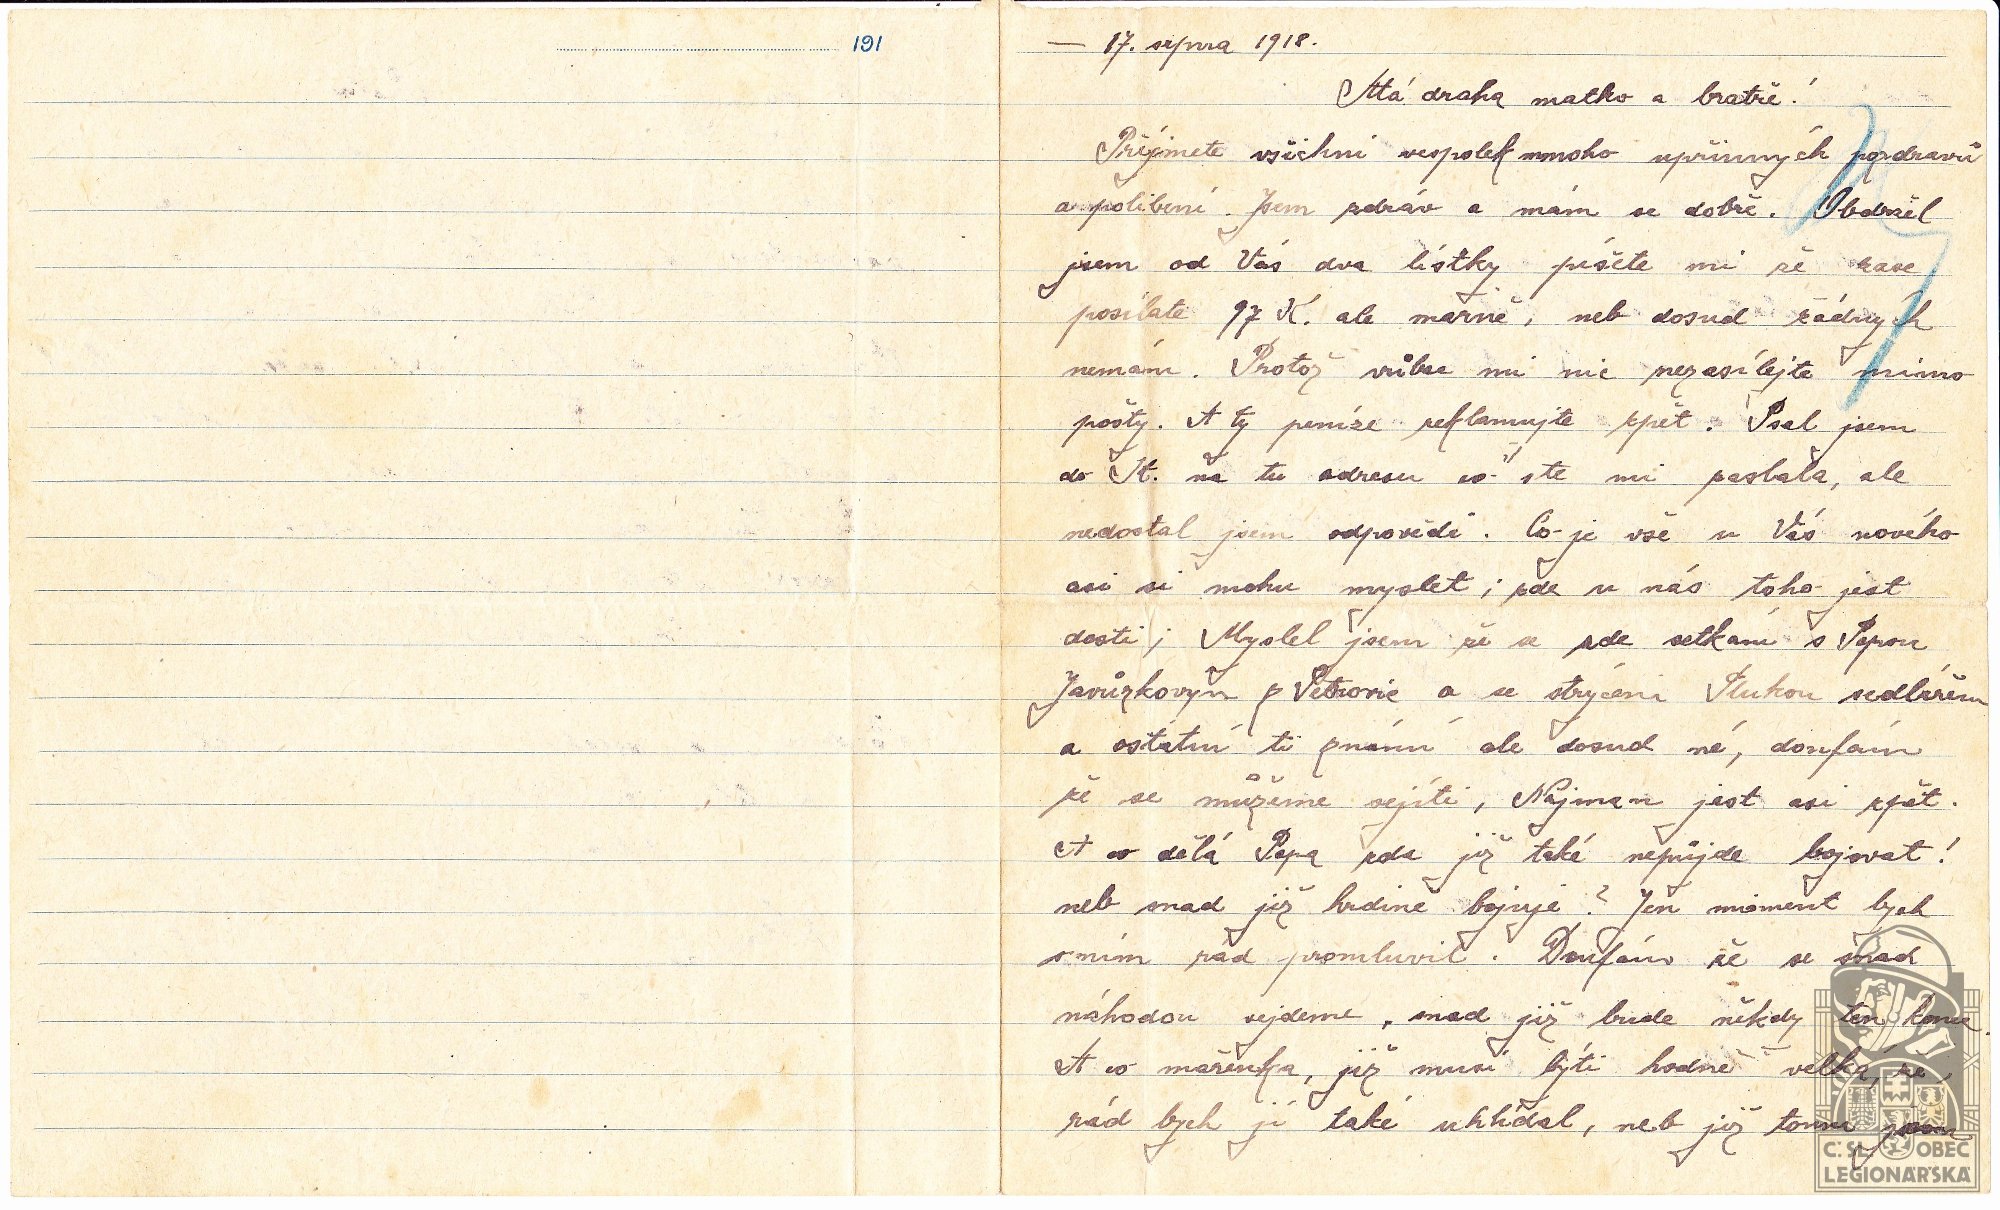 191
— 17. srpna 1918.
Má drahá matko a bratře!
Přijmete všichni vespolek mnoho upřimných pozdravů
a polibení. Jsem zdráv a mám se dobře. Obdržel
jsem od Vás dva lístky píšete mi že zase
posíláte 97 K. ale marně, neb dosud žádných
nemám. Protož vůbec mi nic nezasílejte mimo
pošty. A ty peníze reklamujte zpět. Psal jsem
do K. na tu adresu co ste mi zaslala, ale
nedostal jsem odpovědi. Co je vše u Vás nového
asi si mohu myslet; zde u nás toho jest
dosti; Myslel jsem že se zde setkám s Pepou
Javůrkovým z Petrovic a se strýcem Plukou sedlářem
a ostatní ti známí ale dosud né, doufám
že se můžeme sejíti, Nájman jest asi zpět.
A co dělá Pepa zda již také nepůjde bojovat!
neb snad již hrdině bojuje? Jen moment bych
s ním rád promluvil. Doufám že se snad
náhodou sejdeme, snad již bude někdy ten konec.
A co mařenka, již musí býti hodně velká, že,
rád bych jí také uhlídal, neb již tomu jsou
Č. SL. OBEC
LEGIONÁŘSKÁ